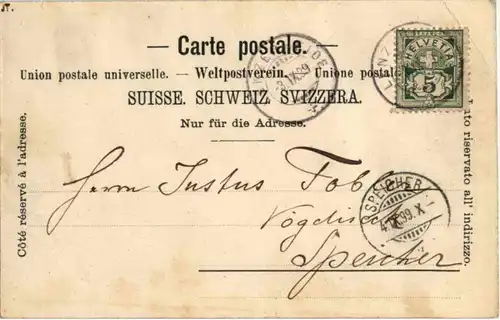 — Carte postale. —
Union postale universelle. — Weltpostverein. — Unione postale
SUISSE. SCHWEIZ. SVIZZERA.
Nur für die Adresse.
Côté réservé à l'adresse.
riservato all' indirizzo.
HELVETIA
5
Herrn Justus Tob
Speicher
SPEICHER